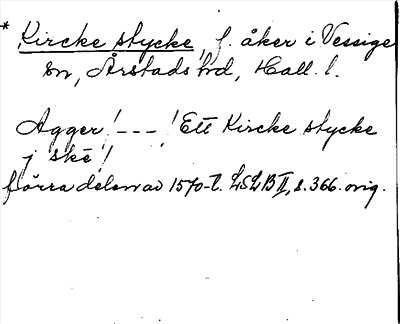 * Kircke stycke, f. åker i Vessige
sn, Årstads hd, Hall. l.
Agger! - - - ! Ett Kircke stycke
j skē!
förra delen av 1570-t. LSLB II, s. 366. orig.